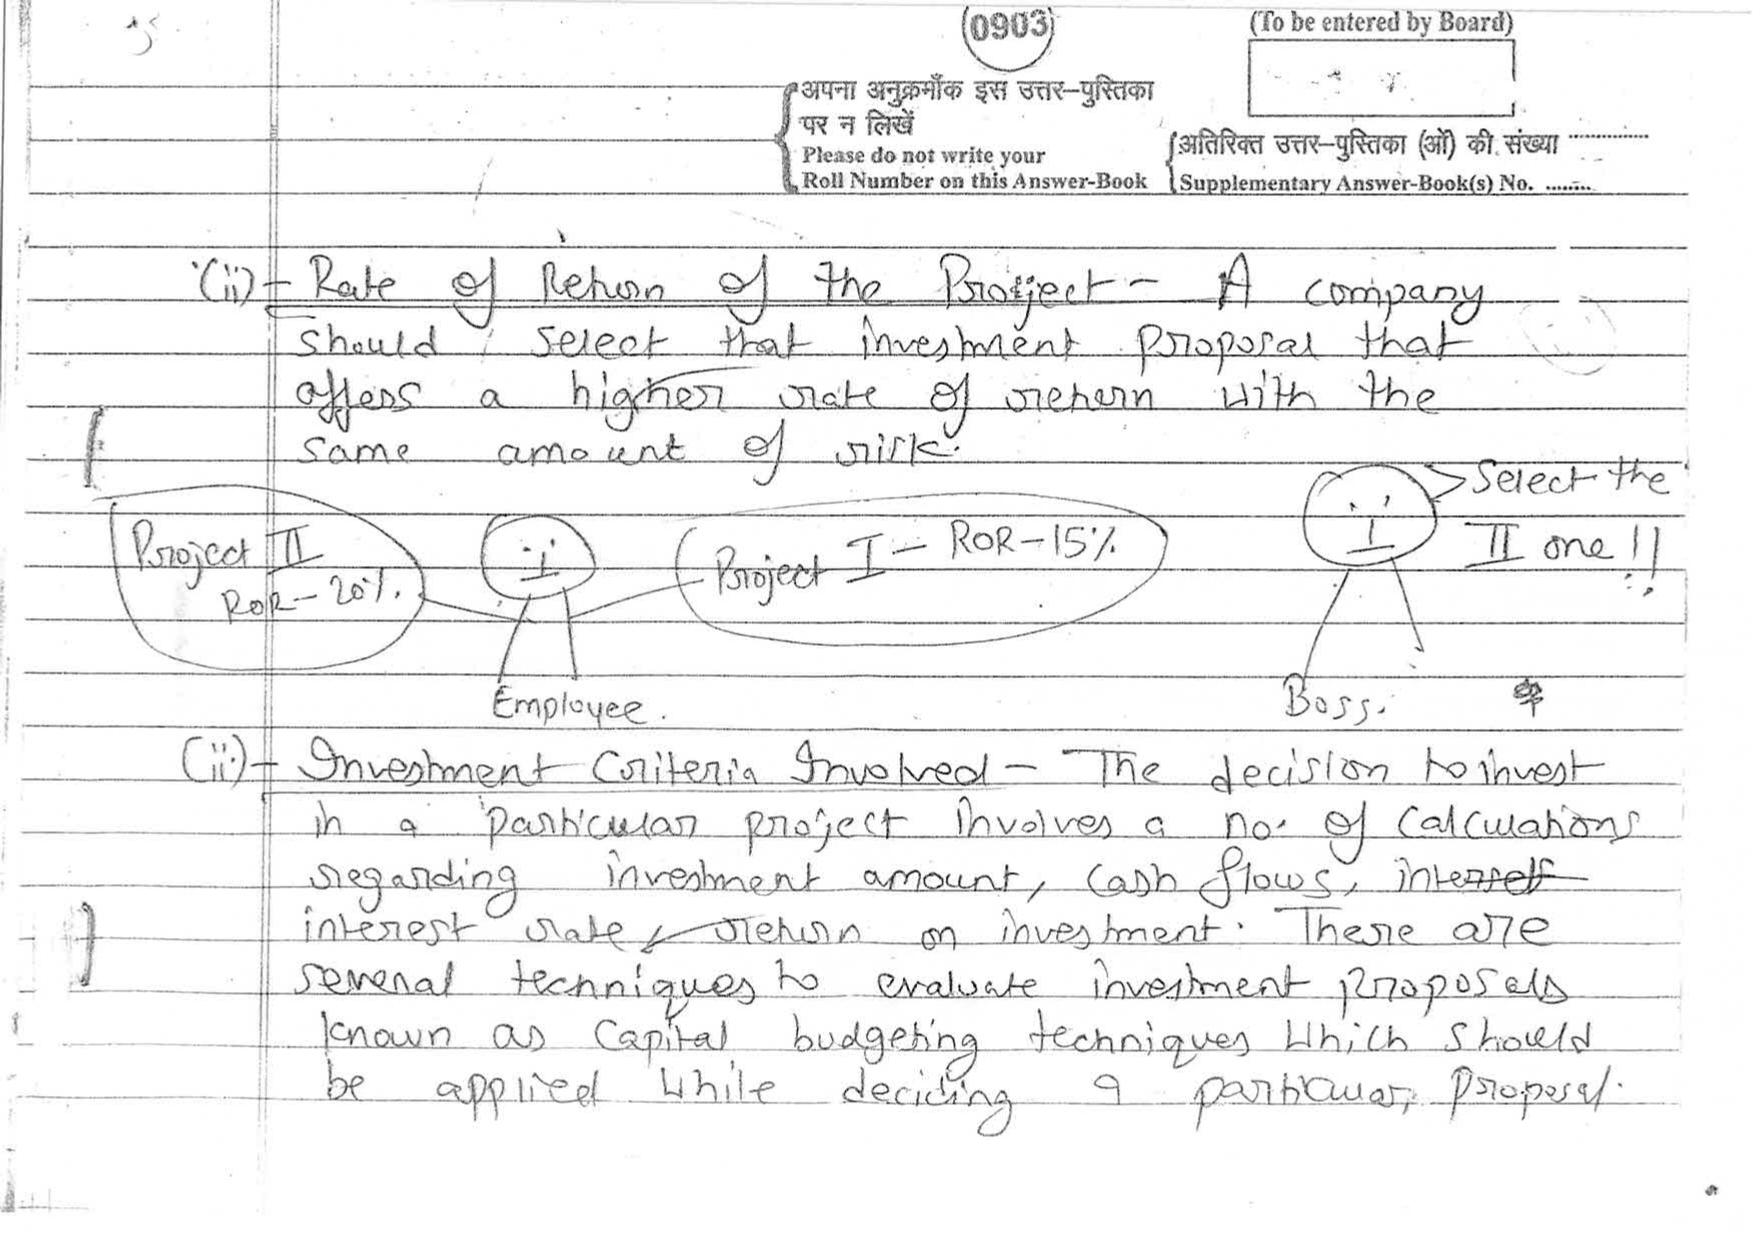 0903
(To be entered by Board)
अपना अनुक्रमाँक इस उत्तर–पुस्तिका
पर न लिखें
Please do not write your
Roll Number on this Answer-Book
अतिरिक्त उत्तर–पुस्तिका (ओं) की संख्या ..............
Supplementary Answer-Book(s) No. ........
(ii) - Rate of Return of the Project - A company
should select that investment proposal that
offers a higher rate of return with the
same amount of risk.
Project II
ROR - 20%.
Project I - ROR - 15%
Select the
II one !!
Employee.
Boss.
(ii) - Investment Criteria Involved - The decision to invest
in a particular project involves a no. of calculations
regarding investment amount, cash flows,
interest rate, return on investment. There are
several techniques to evaluate investment proposals
known as Capital budgeting techniques which should
be applied while deciding a particular proposal.